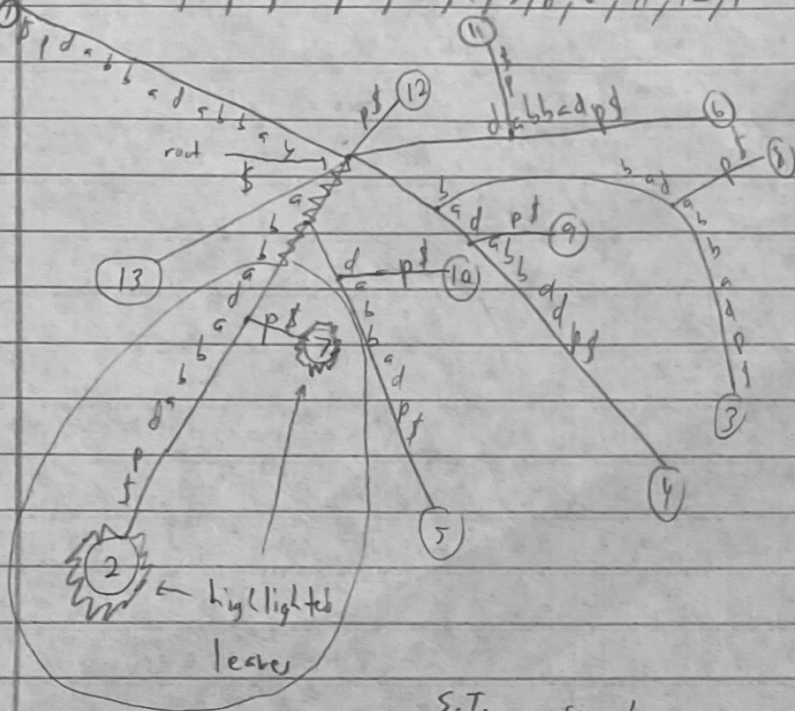 1
$ p d a b b a d a b b a y
root
$
p$
12
11
$ p
d a b b a d p $
6
p $
8
b a d
a b b a d p $
3
b
a d
p $
9
a b b d d p $
4
a
b
b
13
d
p $
10
a b b a d p $
5
a
d
a
p $
7
b b a d p $
2
← highlighted
leaves
S.T.